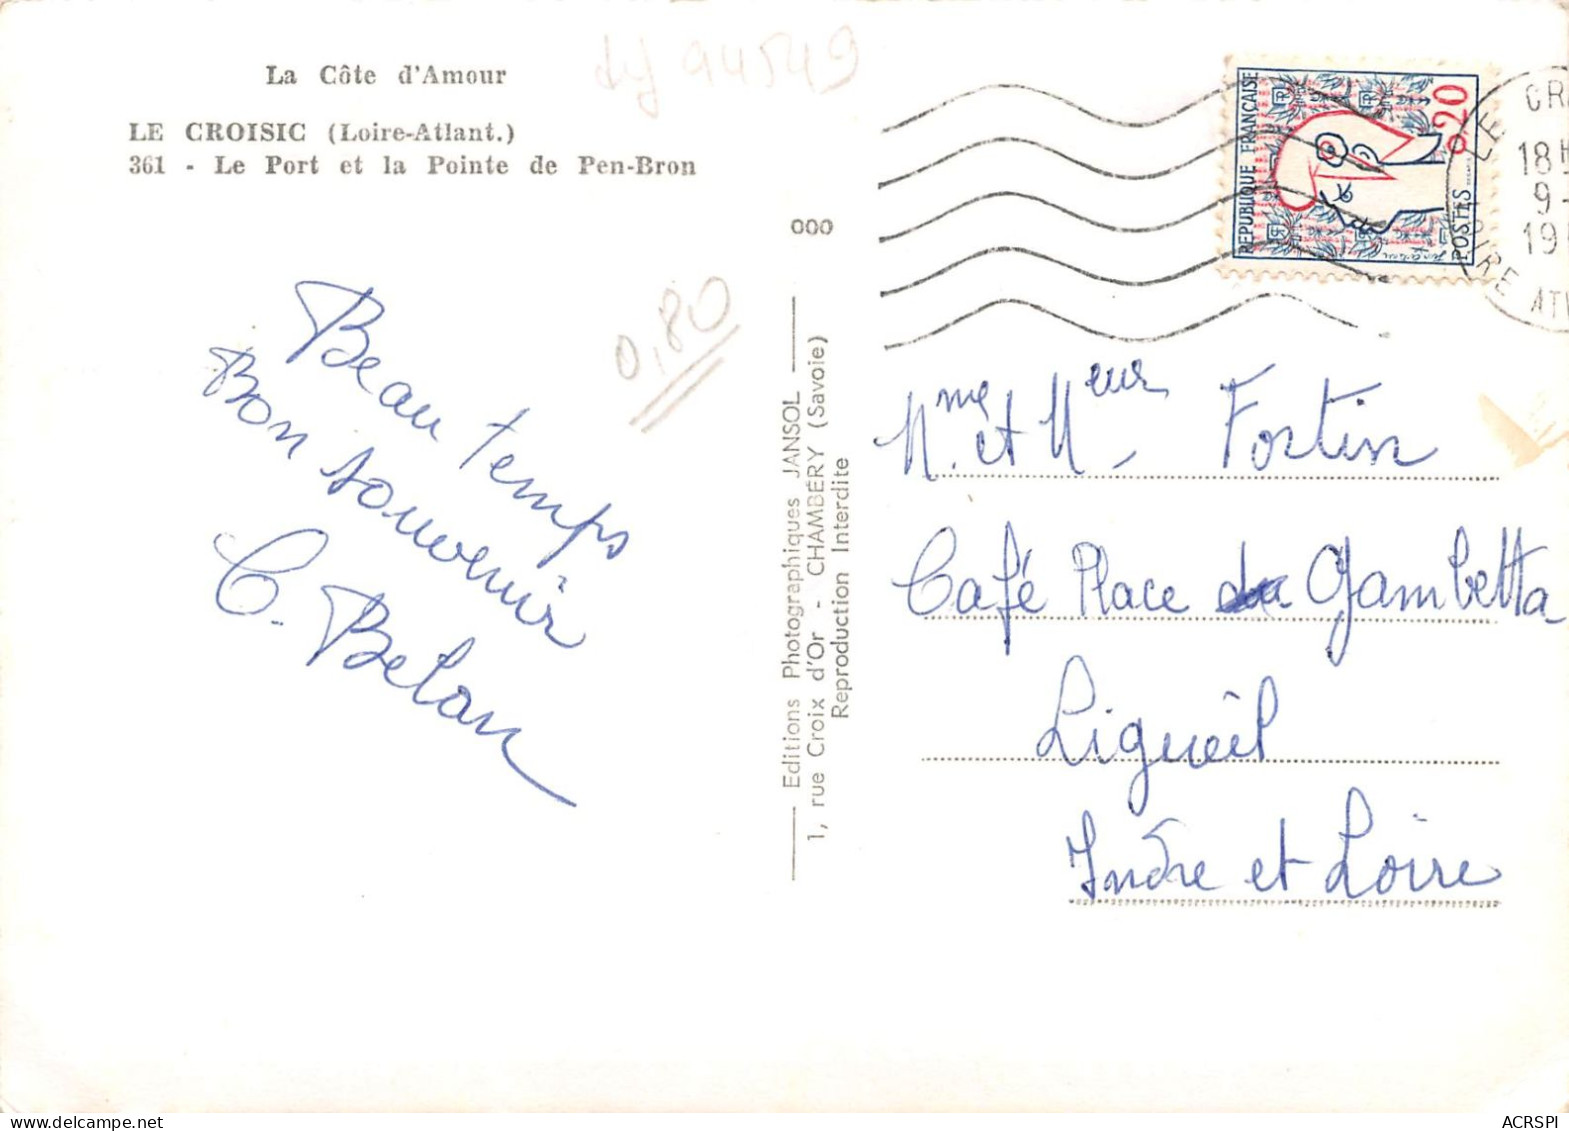 La Côte d'Amour
LE CROISIC (Loire-Atlant.)
361 - Le Port et la Pointe de Pen-Bron
94549
000
0,80
Beau temps
Bon souvenir
C. Belan
Editions Photographiques JANSOL
1, rue Croix d'Or - CHAMBÉRY (Savoie)
Reproduction Interdite
REPUBLIQUE FRANÇAISE
0,20
POSTES
LE CR
18H
9-
19
LOIRE ATL
Mme et Mr Fortin
Café Place Gambetta
Ligueil
Indre et Loire
ACRSPI